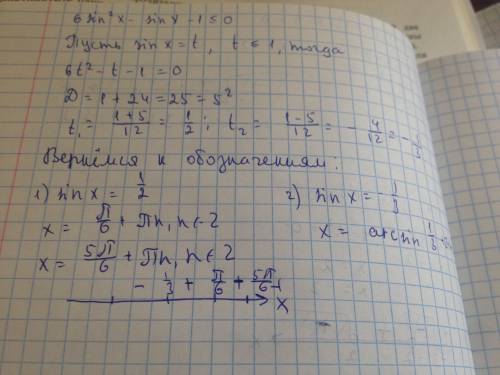 6 sin²x - sin x - 1 ≤ 0
Пусть sin x = t, t ≤ 1, тогда
6t² - t - 1 = 0
D = 1 + 24 = 25 = 5²
t₁ = (1+5)/12 = 1/2; t₂ = (1-5)/12 = - 4/12 = - 1/3
Вернёмся к обозначениям:
1) sin x = 1/2
x = π/6 + πn, n ∈ Z
x = 5π/6 + πn, n ∈ Z
2) sin x = - 1/3
x = arcsin 1/3
- 1/3 + π/6 + 5π/6
x